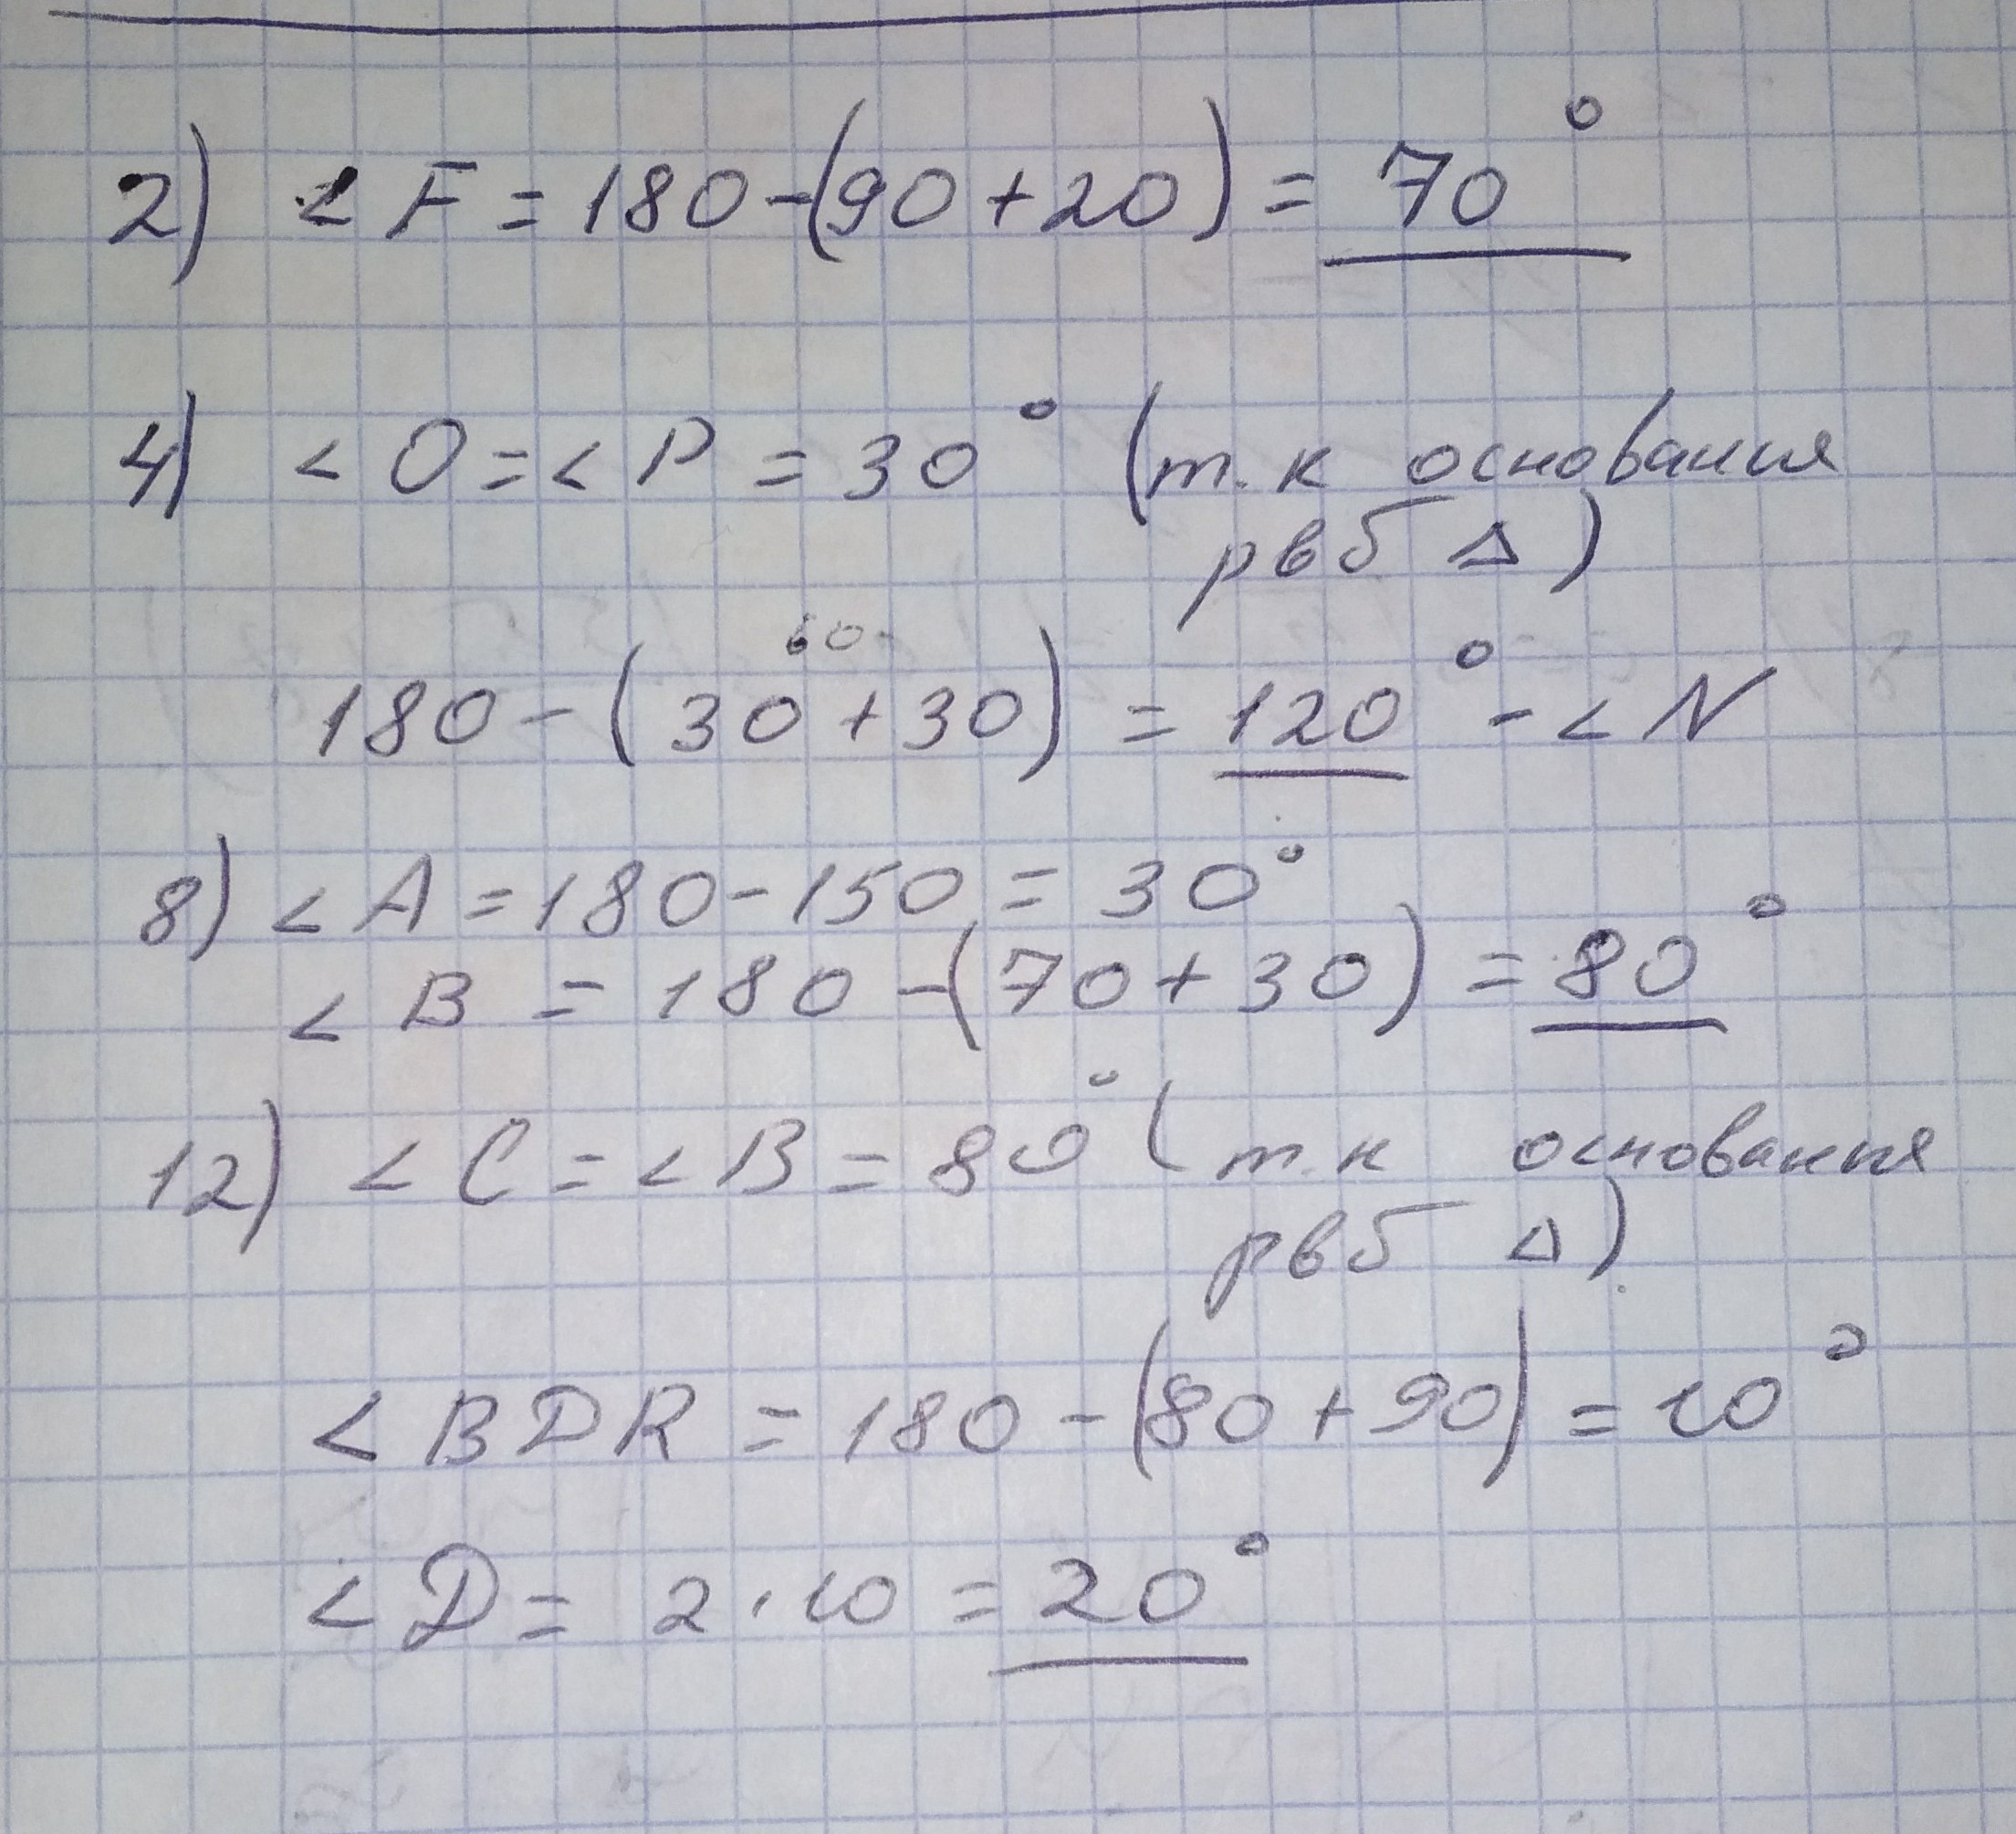 2) ∠F = 180 - (90 + 20) = 70°
4) ∠O = ∠P = 30° (т.к основания
рвб Δ)
60
180 - (30 + 30) = 120° - ∠N
8) ∠A = 180 - 150 = 30°
∠B = 180 - (70 + 30) = 80°
12) ∠C = ∠B = 80° (т.к основания
рвб Δ)
∠BDR = 180 - (80 + 90) = 10°
∠D = 2 · 10 = 20°